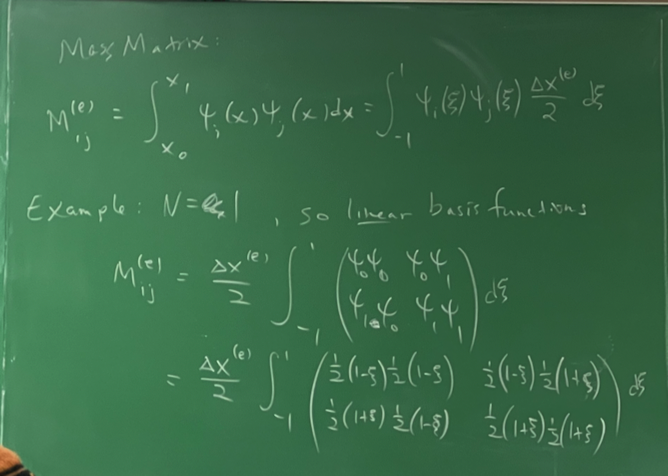 Mass Matrix:
M_{ij}^{(e)} = ∫_{x_0}^{x_1} ψ_i(x) ψ_j(x) dx = ∫_{-1}^{1} ψ_i(ξ) ψ_j(ξ) \frac{Δx^{(e)}}{2} dξ
Example: N=1, so linear basis functions
M_{ij}^{(e)} = \frac{Δx^{(e)}}{2} ∫_{-1}^{1} \begin{pmatrix} ψ_0ψ_0 & ψ_0ψ_1 \\ ψ_1ψ_0 & ψ_1ψ_1 \end{pmatrix} dξ
= \frac{Δx^{(e)}}{2} ∫_{-1}^{1} \begin{pmatrix} \frac{1}{2}(1-ξ)\frac{1}{2}(1-ξ) & \frac{1}{2}(1-ξ)\frac{1}{2}(1+ξ) \\ \frac{1}{2}(1+ξ)\frac{1}{2}(1-ξ) & \frac{1}{2}(1+ξ)\frac{1}{2}(1+ξ) \end{pmatrix} dξ